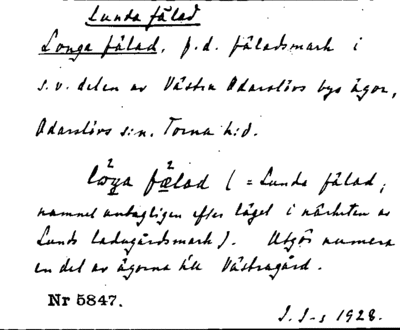 Lunda fälad
Longa fälad, f.d. fäladsmark i
s.v. delen av Västra Odarslövs bys ägor,
Odarslövs s:n. Torna h:d.
lòŋa fǽlad (= Lunda fälad;
namnet antagligen efter läget i närheten av
Lunds ladugårdsmark). Utgör numera
en del av ägorna till Västragård.
Nr 5847.
J. J-s 1928.